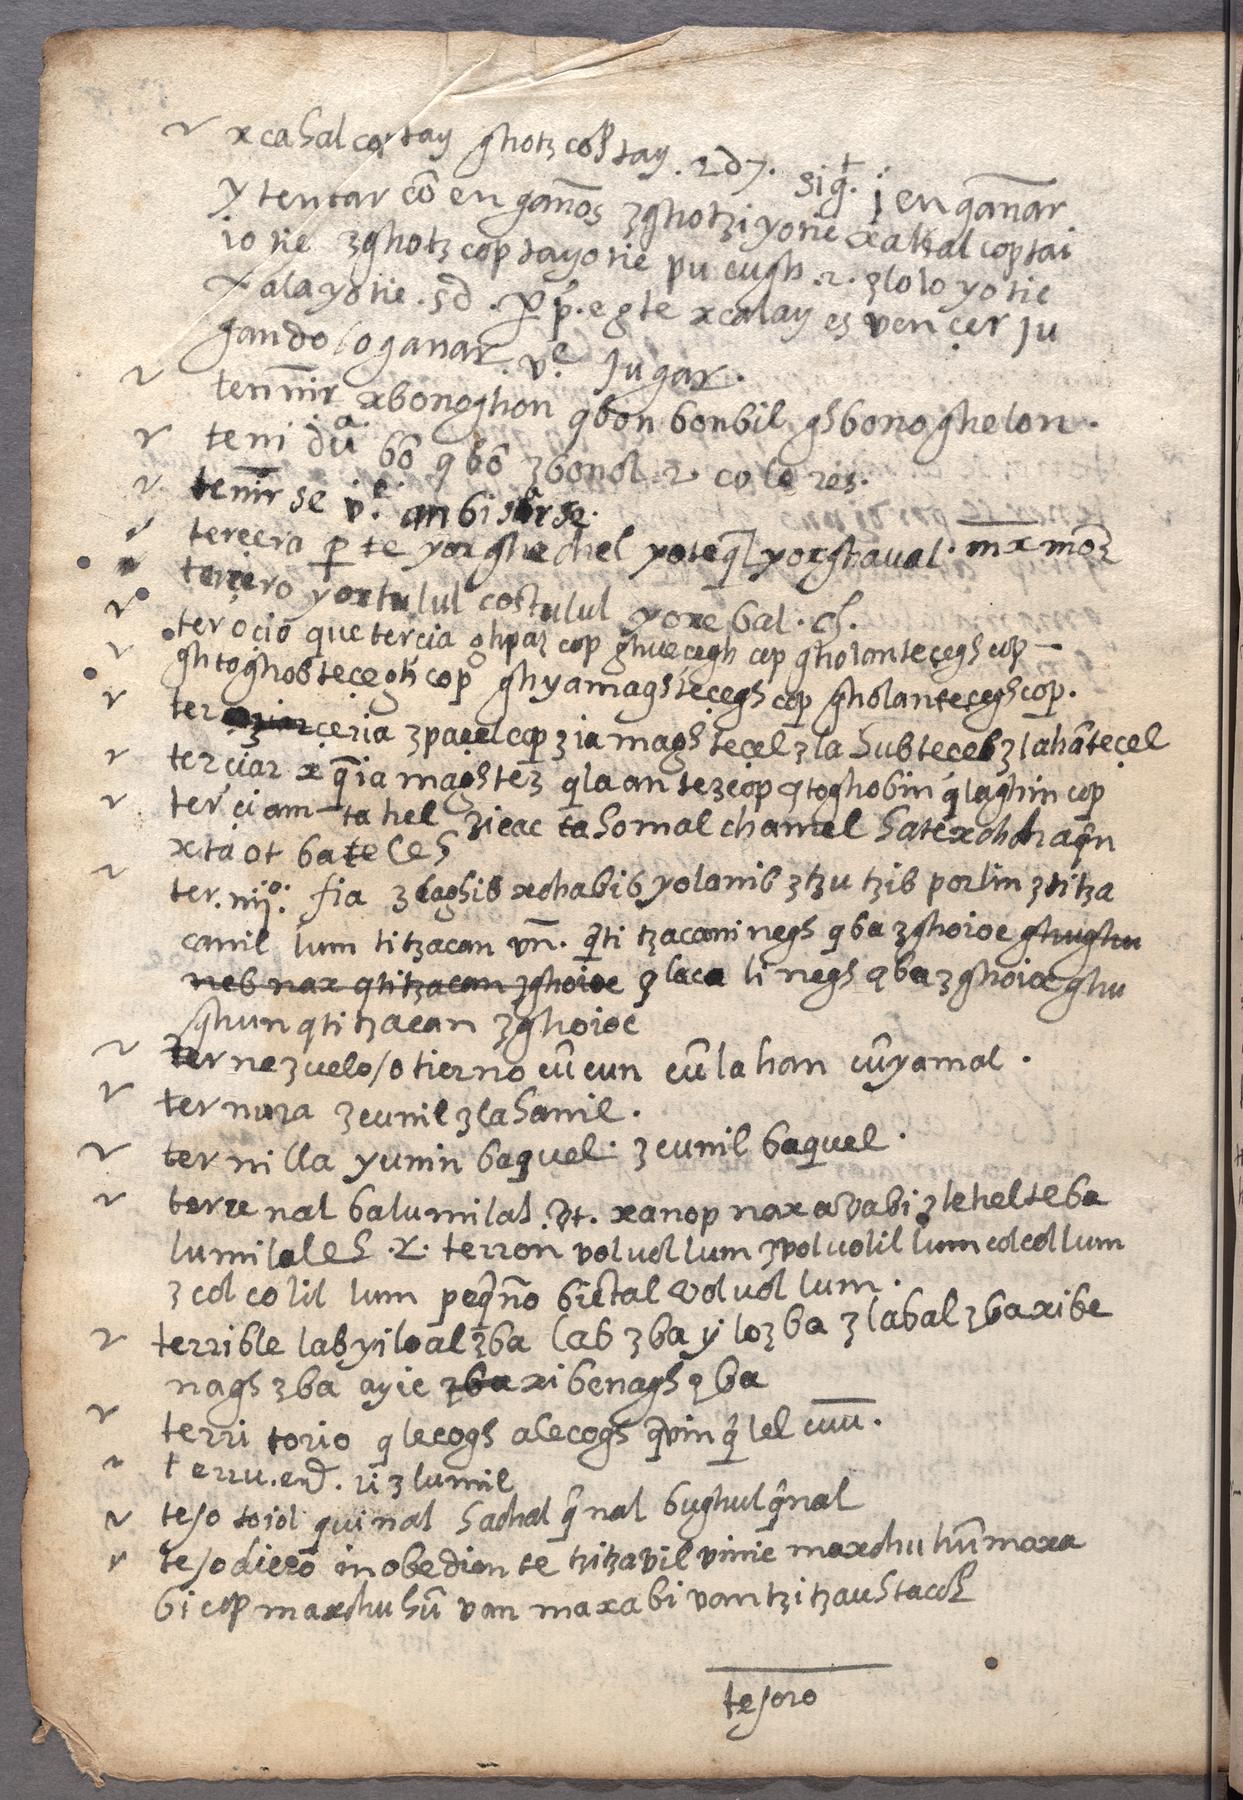 xcahal coptay ghotz coptay. 2 d 7. sig. j enganar
y tentar cō en gaños zghotziyotie xahal coptai
iotie zghotz coptayotie pu cugh .2. zlolo yotie
xalayotie. sd. p p. egte xcalay es vençer Ju
gando / o ganar. ve. Jugar.
tennir xbonoghon qbon bonbil ghbonoghelon.
teni dua bō q bō zbonol. 2 colores.
tenir se v.e
tercera p te yoxghechel yoteql yoxghaual.
terçero yoxtulul costulul yoxebal. ch.
terocio que tercia ghpaz cop ghuecegh cop gholanteçegh cop
ghtoghobteçegh cop ghyamaghteçegh cop gholanteçegh cop.
terçeria zpaçel cop ziamaghteçel zla hubteçeb zlahāteçel
terciar x q̄ia maghtez qlaantez cop qtoghobin q̄ laghin cop
terciam ta hel zieac ta homal chamel
xta ot bateles
ter. mjo. fia zlaghib xchabib yolanib ztzutzib porlin ztitza
canil lum titzacan vn. q̄ti tzacaninegh qba zghoioc ghughu
neb nax qtitzacan zghoioc q laca ti negh qba zghoioc ghu
ghun qtitzacan zghoioc
ternezuelo / o tierno cūcun cūlahan cūyamal.
ternura zcunil zlahanil.
ternilla yunin baquel. zcunil baquel.
terrenal balumilal. dt. xanop nax avabi zlehelteba
lumilales. 2. terron voluol lum zvoluolil lum colcol lum
zcolcolil lum peqño bictal voluol lum.
terrible labyiloal zba lab zba y loz ba zlabal zba xibe
nagh zba ayic zba xibenagh qba
territorio q lecogh alecogh
zlumil
teso toiol quinal hachal q̄nal bughul q̄nal
teso dierō inobediente tzitzavil vinic maxchu hū maxa
bi cop maxchu hū van maxabi van tzitzauh
tesoro